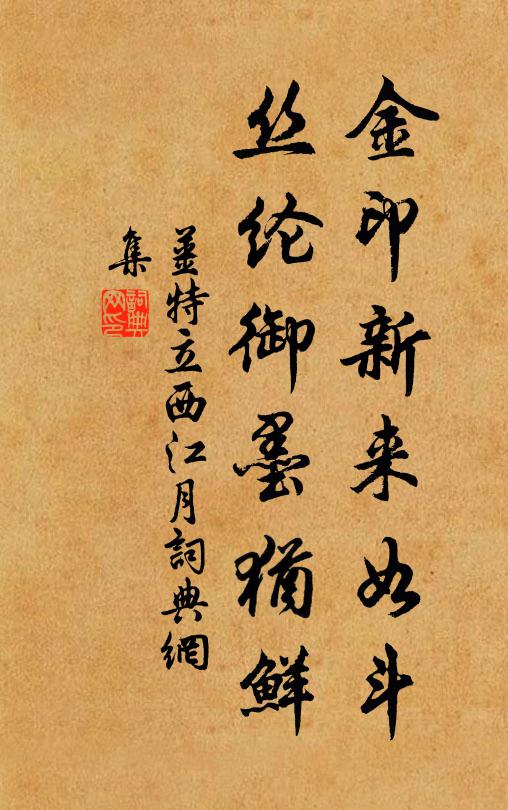 金印新来如斗
丝纶御墨犹鲜
姜特立西江月詞典網
集
詞典
网印